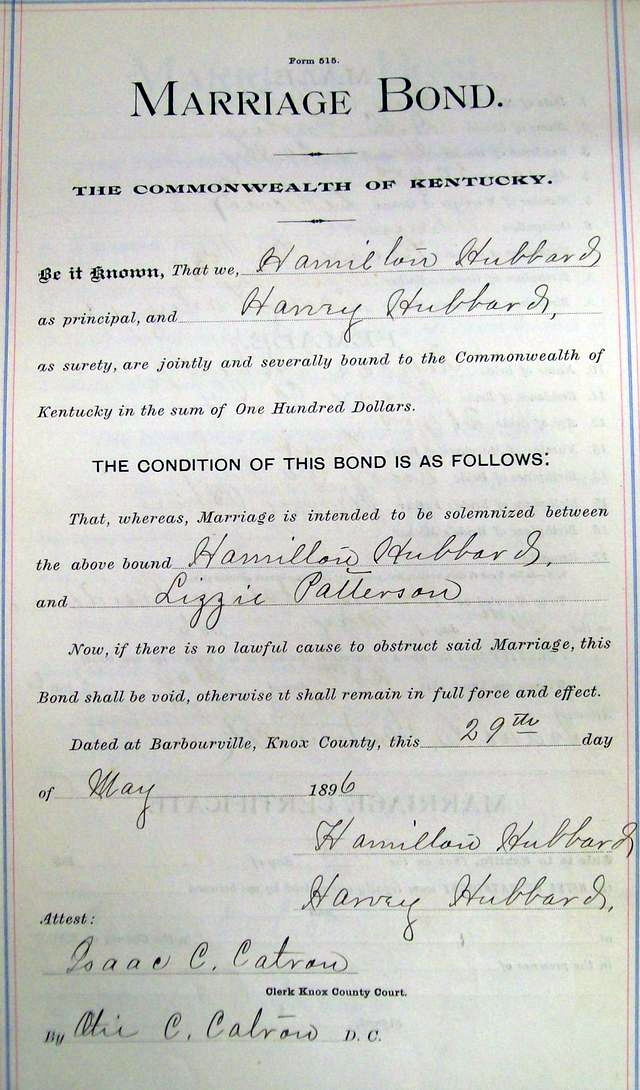 Form 515.
MARRIAGE BOND.
THE COMMONWEALTH OF KENTUCKY.
Be it Known, That we, Hamilton Hubbard
as principal, and Harvey Hubbard,
as surety, are jointly and severally bound to the Commonwealth of
Kentucky in the sum of One Hundred Dollars.
THE CONDITION OF THIS BOND IS AS FOLLOWS:
That, whereas, Marriage is intended to be solemnized between
the above bound Hamilton Hubbard,
and Lizzie Patterson
Now, if there is no lawful cause to obstruct said Marriage, this
Bond shall be void, otherwise it shall remain in full force and effect.
Dated at Barbourville, Knox County, this 29th day
of May 1896
Hamilton Hubbard
Harvey Hubbard,
Attest:
Isaac C. Catron
Clerk Knox County Court.
By C. Catron D. C.